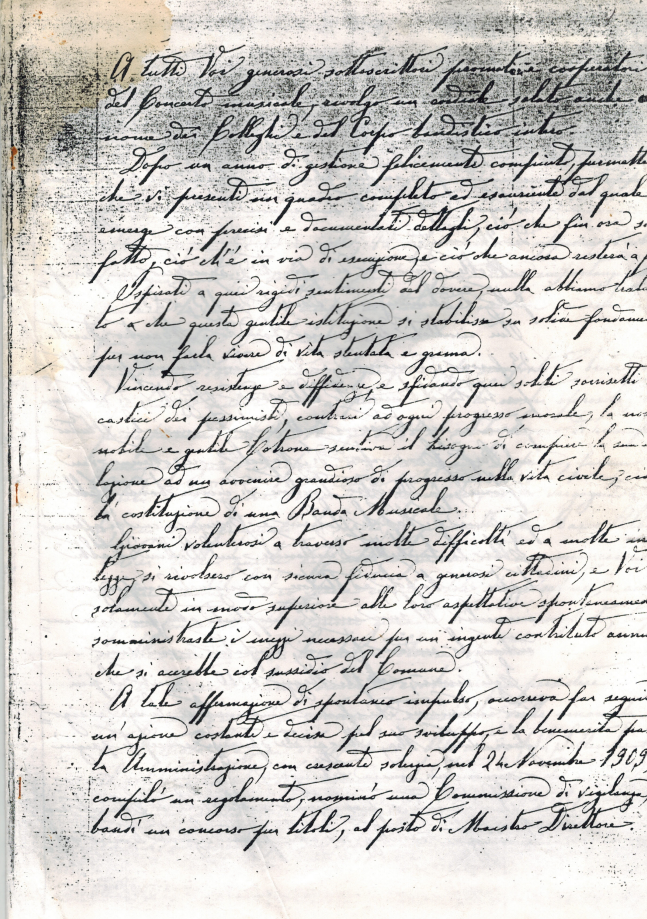 A tutti Voi generosi sottoscrittori promotori e cooperatori
del Concerto musicale, rivolgo un cordiale saluto anche a
nome dei Colleghi e del Corpo bandistico intero.
Dopo un anno di gestione felicemente compiuto, permette
che vi presenti un quadro completo ed esauriente dal quale
emerge con precisi e documentati dettagli, ciò che fin ora s
fatto, ciò ch'è in via di esecuzione, e ciò che ancora resterà a f
Ispirati a quei rigidi sentimenti del dovere, nulla abbiamo
to a che questa gentile istituzione si stabilisse su solide fondame
per non farla vivere di vita stentata e grama.
Vincendo resistenze e diffidenze, e sfidando quei soliti sorrisetti
castici dei pessimisti, contrari ad ogni progresso morale, la no
nobile e gentile Cotrone sentiva il bisogno di compiere la sua
lazione ad un avvenire grandioso di progresso nella vita civile, cio
la costituzione di una Banda Musicale.
Giovani volenterosi a traverso molte difficoltà ed a molte in
si rivolsero con sicura fiducia a generosi cittadini, e Voi
solamente in modo superiore alle loro aspettative spontaneamen
somministraste i mezzi necessari per un ingente contributo annu
che si accrebbe col sussidio del Comune.
A tale affermazione di spontaneo impulso, occorreva far segui
un'azione costante e decisa pel suo sviluppo, e la benemerita pa
ta Amministrazione, con crescente solerzia, nel 24 Novembre 1909,
compilò un regolamento, nominò una Commissione di vigilanza,
bandì un concorso per titoli, al posto di Maestro Direttore.